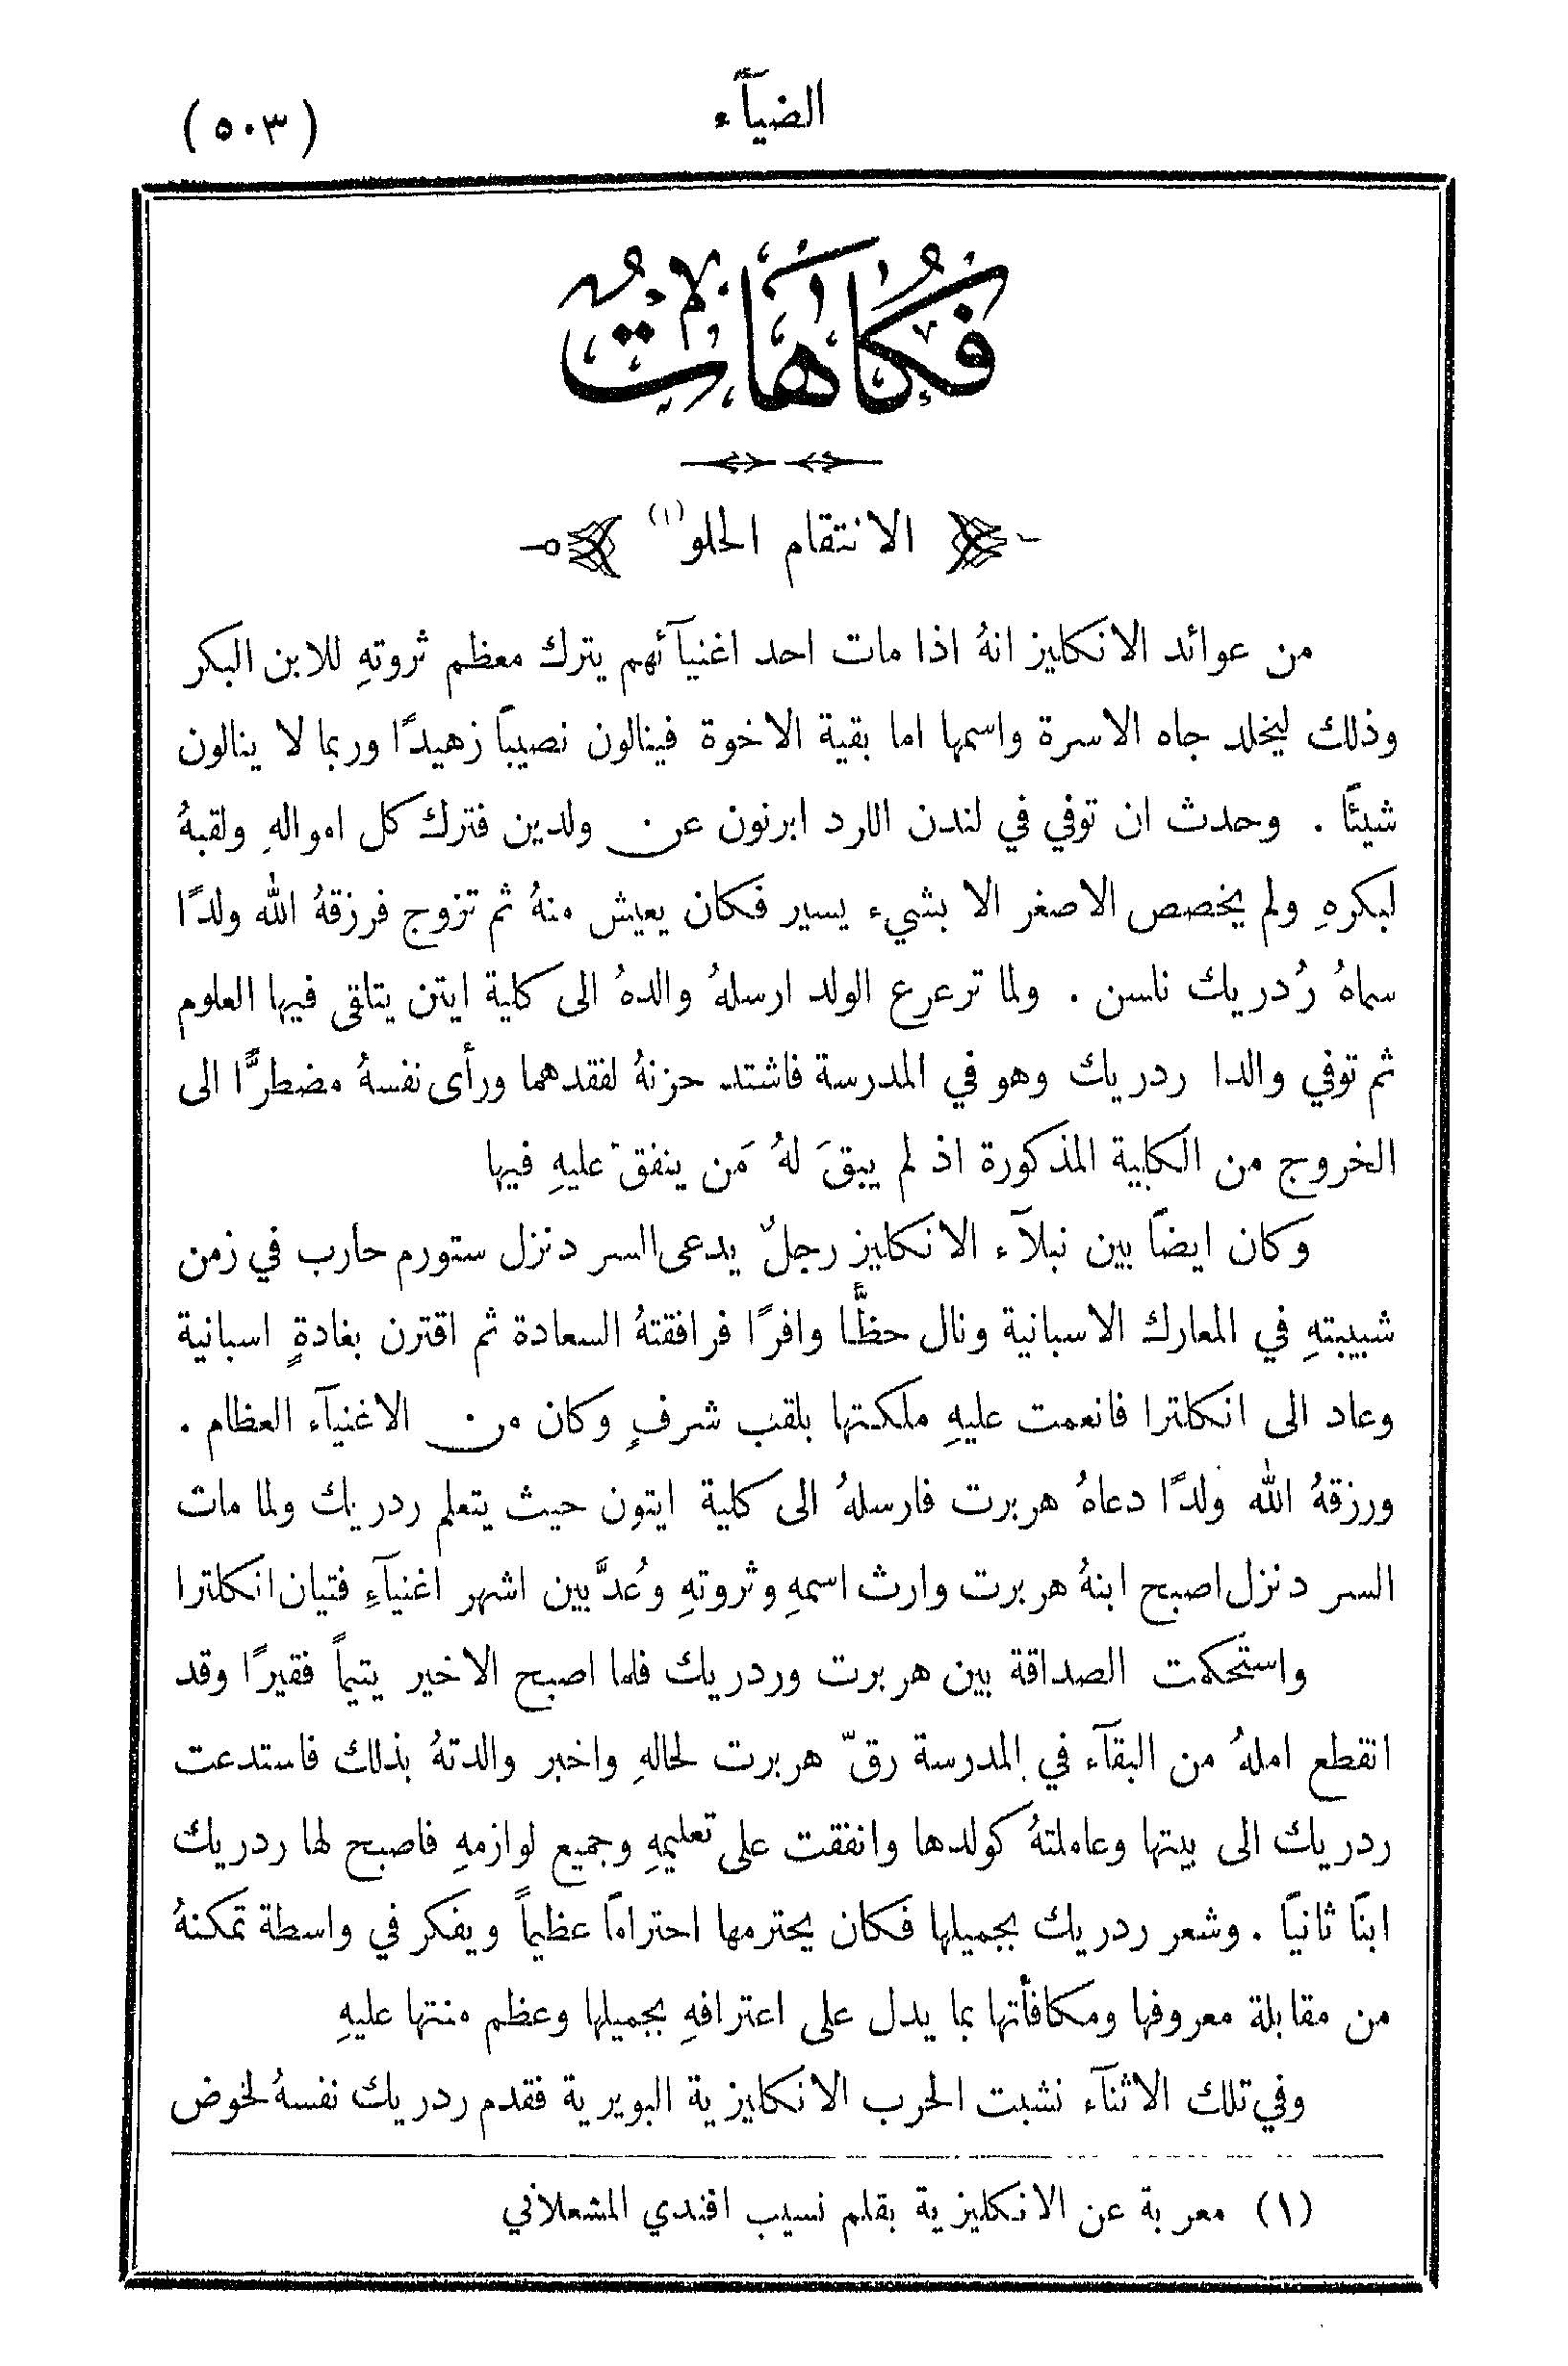 الضيآء
(٥٠٣)
فُكَاهَاتٌ
الانتقام الحلو(١)
من عوائد الانكليز انهُ اذا مات احد اغنيآئهم يترك معظم ثروتهِ للابن البكر
وذلك ليخلد جاه الاسرة واسمها اما بقية الاخوة فينالون نصيباً زهيدًا وربما لا ينالون
شيئًا . وحدث ان توفي في لندن اللرد ابرنون عن ولدين فترك كل امواله ِ ولقبهُ
لبكرهِ ولم يخصص الاصغر الا بشيء يسير فكان يعيش منهُ ثم تزوج فرزقهُ الله ولدًا
سماهُ رُدريك نلسن . ولما ترعرع الولد ارسلهُ والدهُ الى كلية ايتن يتلقى فيها العلوم
ثم توفي والدا ردريك وهو في المدرسة فاشتد حزنهُ لفقدهما ورأى نفسهُ مضطرًّا الى
الخروج من الكلية المذكورة اذ لم يبقَ لهُ مَن ينفق عليهِ فيها
وكان ايضاً بين نبلآء الانكليز رجلٌ يدعى السر دنزل ستورم حارب في زمن
شبيبتهِ في المعارك الاسبانية ونال حظًّا وافرًا فرافقتهُ السعادة ثم اقترن بغادةٍ اسبانية
وعاد الى انكلترا فانعمت عليهِ ملكتها بلقب شرفٍ وكان من الاغنيآء العظام .
ورزقهُ الله ولدًا دعاهُ هربرت فارسلهُ الى كلية ايتون حيث يتعلم ردريك ولما مات
السر دنزل اصبح ابنهُ هربرت وارث اسمهِ وثروتهِ وعُدَّ بين اشهر اغنيآءِ فتيان انكلترا
واستحكمت الصداقة بين هربرت وردريك فلما اصبح الاخير يتيماً فقيرًا وقد
انقطع املهُ من البقآء في المدرسة رقّ هربرت لحالهِ واخبر والدتهُ بذلك فاستدعت
ردريك الى بيتها وعاملتهُ كولدها وانفقت على تعليمهِ وجميع لوازمهِ فاصبح لها ردريك
ابنًا ثانياً . وشعر ردريك بجميلها فكان يحترمها احتراماً عظيماً ويفكر في واسطة تمكنهُ
من مقابلة معروفها ومكافأتها بما يدل على اعترافهِ بجميلها وعظم منتها عليهِ
وفي تلك الاثنآء نشبت الحرب الانكليزية البويرية فقدم ردريك نفسهُ لخوض
(١) معربة عن الانكليزية بقلم نسيب افندي المشعلاني